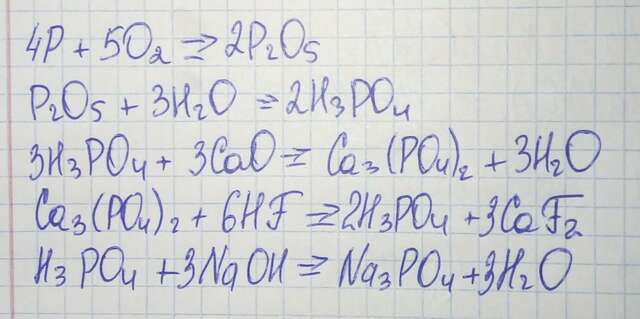 4P + 5O₂ => 2P₂O₅
P₂O₅ + 3H₂O => 2H₃PO₄
3H₃PO₄ + 3CaO => Ca₃(PO₄)₂ + 3H₂O
Ca₃(PO₄)₂ + 6HF => 2H₃PO₄ + 3CaF₂
H₃PO₄ + 3NaOH => Na₃PO₄ + 3H₂O